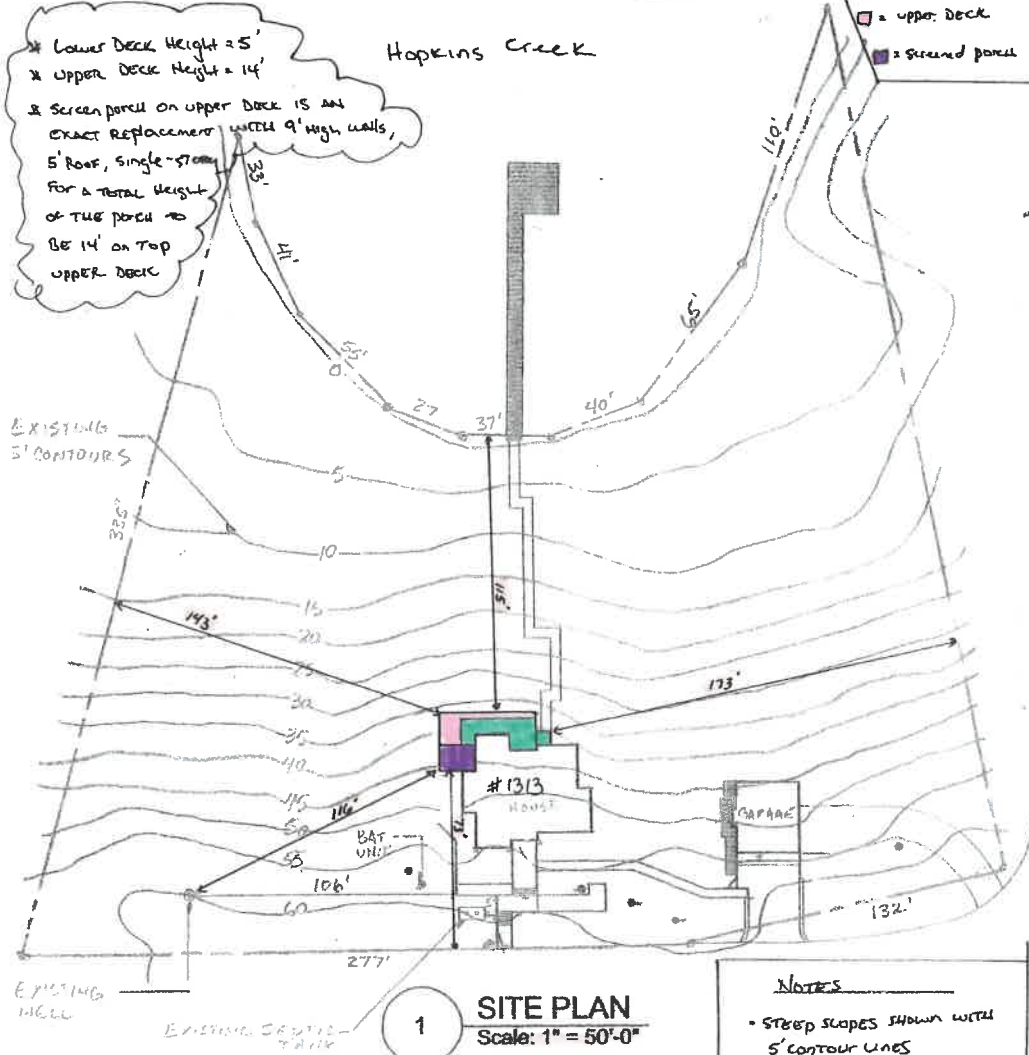 * Lower Deck Height = 5'
* UPPER DECK Height = 14'
* Screen porch on upper Deck IS AN
EXACT Replacement WITH 9' High walls,
5' Roof, Single-story
For a total Height
of THE porch to
BE 14' on Top
UPPER DECK
Hopkins Creek
= upper DECK
= screened porch
33'
41'
55'
0
27
37'
40'
65'
110'
EXISTING
5' CONTOURS
335'
5
10
15
20
25
30
35
40
45
50
55
60
143'
115'
173'
116'
73'
#1313
HOUSE
GARAGE
BAT
UNIT
106'
132'
277'
EXISTING
WELL
EXISTING SEPTIC
TANK
1
SITE PLAN
Scale: 1" = 50'-0"
NOTES
• STEEP SLOPES SHOWN WITH
5' CONTOUR LINES